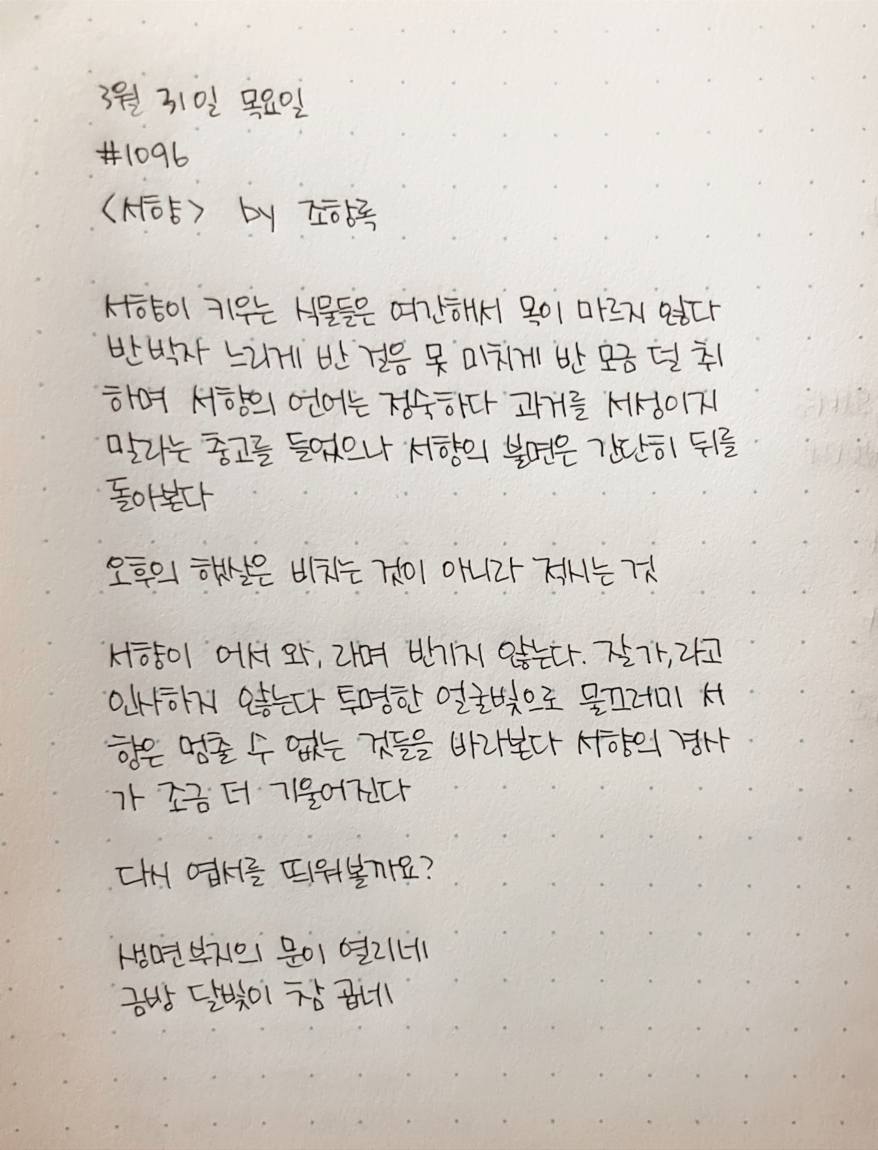 3월 31일 목요일
#1096
<서향> by 조항록
서향이 키우는 식물들은 여간해서 목이 마르지 않다
반 박자 느리게 반 걸음 못 미치게 반 모금 덜 취
하며 서향의 언어는 정숙하다 과거를 서성이지
말라는 충고를 들었으나 서향의 불면은 간단히 뒤를
돌아본다
오후의 햇살은 비치는 것이 아니라 적시는 것
서향이 어서 와, 라며 반기지 않는다. 잘 가, 라고
인사하지 않는다 투명한 얼굴빛으로 물끄러미 서
향은 멈출 수 없는 것들을 바라본다 서향의 경사
가 조금 더 기울어진다
다시 엽서를 띄워볼까요?
생면부지의 문이 열리네
금방 달빛이 참 곱네